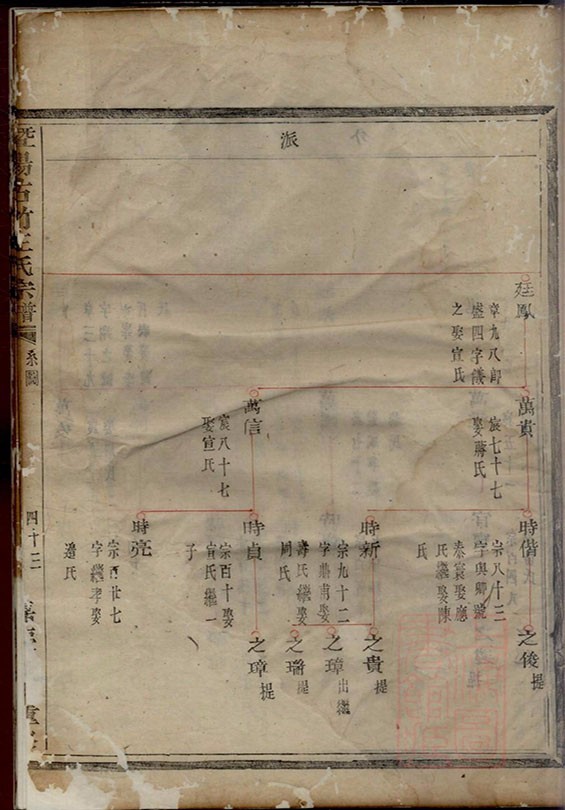 派
廷鳳
章九八郎
盛四字儀
之娶宣氏
萬貴
宸七十七
娶蔣氏
萬信
宸八十七
娶宣氏
時偕
宗八十三
字與卿號
泰宸娶應
氏繼娶陳
氏
時新
宗九十二
字鼎甫娶
壽氏繼娶
周氏
時貞
宗百十娶
宣氏繼一
子
時亮
宗百廿七
字繼孝娶
邊氏
之後 提
之貴 提
之璋 出繼
之璠 提
之璋 提
暨陽古竹王氏宗譜
系圖
四十三